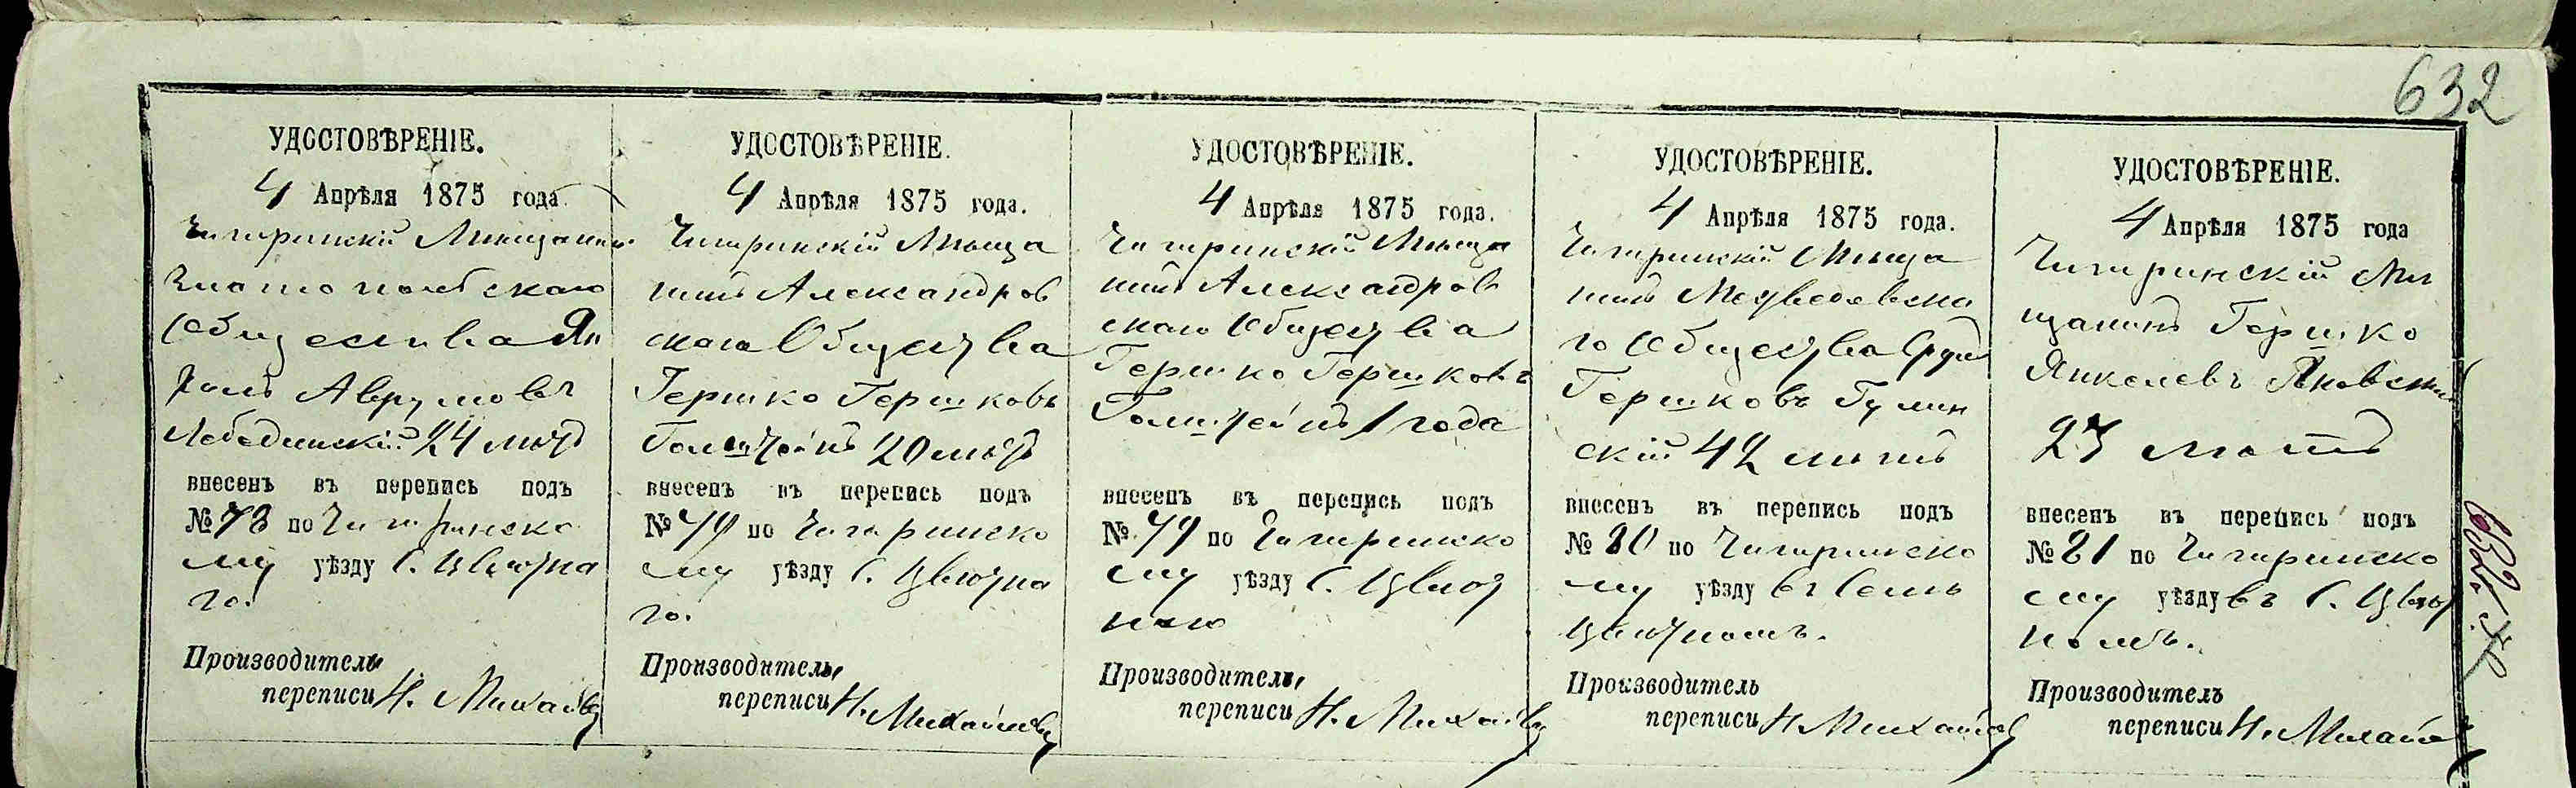 632
УДОСТОВѢРЕНІЕ.
4 Апрѣля 1875 года.
Чигиринскій Мищанинъ
Златопольскаго
Общества Ян
кель Аврумовъ
Лебединскій 24 лѣтъ
внесенъ въ перепись подъ
№ 78 по Чигиринско
му уѣзду С. Цвѣтна
го.
Производитель
переписи Н. Михайлов
УДОСТОВѢРЕНІЕ.
4 Апрѣля 1875 года.
Чигиринскій Мѣща
нинъ Александров
скаго Общества
Гершко Гершковъ
20 лѣтъ
внесенъ въ перепись подъ
№ 79 по Чигиринско
му уѣзду С. Цвѣтна
го.
Производитель
переписи Н. Михайлов
УДОСТОВѢРЕНІЕ.
4 Апрѣля 1875 года.
Чигиринскій Мѣща
нинъ Александров
скаго Общества
Гершко Гершковъ
1 года
внесенъ въ перепись подъ
№ 79 по Чигиринско
му уѣзду С. Цвѣт
наго
Производитель
переписи Н. Михайлов
УДОСТОВѢРЕНІЕ.
4 Апрѣля 1875 года.
Чигиринскій Мѣща
нинъ Медведовска
го Общества Сруль
Гершковъ
скій 42 лѣтъ
внесенъ въ перепись подъ
№ 80 по Чигиринско
му уѣзду въ Селѣ
Цвѣтномъ.
Производитель
переписи Н. Михайлов
УДОСТОВѢРЕНІЕ.
4 Апрѣля 1875 года
Чигиринскій Мѣ
щанинъ Гершко
Янкелевъ Яновскій
23 лѣтъ
внесенъ въ перепись подъ
№ 81 по Чигиринско
му уѣзду въ С. Цвѣт
номъ.
Производитель
переписи Н. Михайлов
632